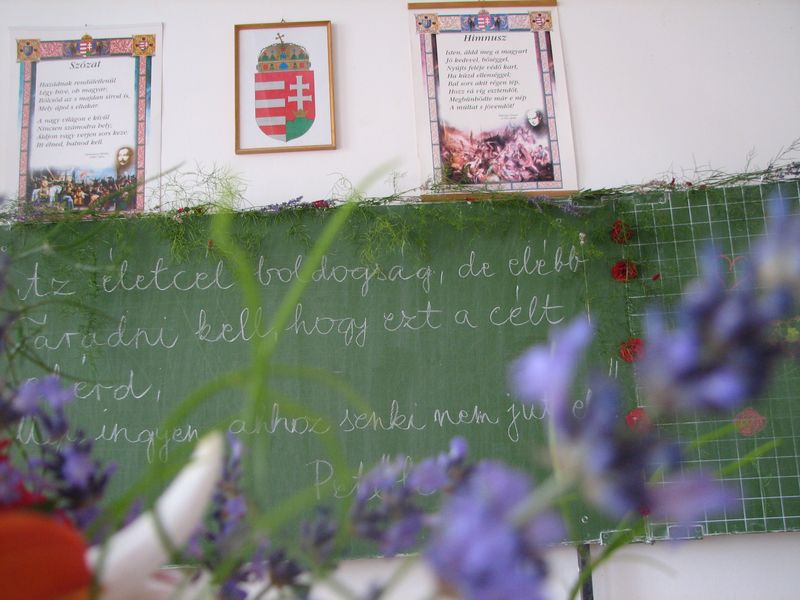 Szózat
Hazádnak rendületlenűl
Légy híve, oh magyar;
Bölcsőd az s majdan sírod is,
Mely ápol s eltakar.
A nagy világon e kívűl
Nincsen számodra hely;
Áldjon vagy verjen sors keze:
Itt élned, halnod kell.
Himnusz
Isten, áldd meg a magyart
Jó kedvvel, bőséggel,
Nyújts feléje védő kart,
Ha küzd ellenséggel;
Bal sors akit régen tép,
Hozz rá víg esztendőt,
Megbűnhődte már e nép
A múltat s jövendőt!
Az életcél boldogság, de elébb
fáradni kell, hogy ezt a célt
elérd,
ingyen ahhoz senki nem jut el"